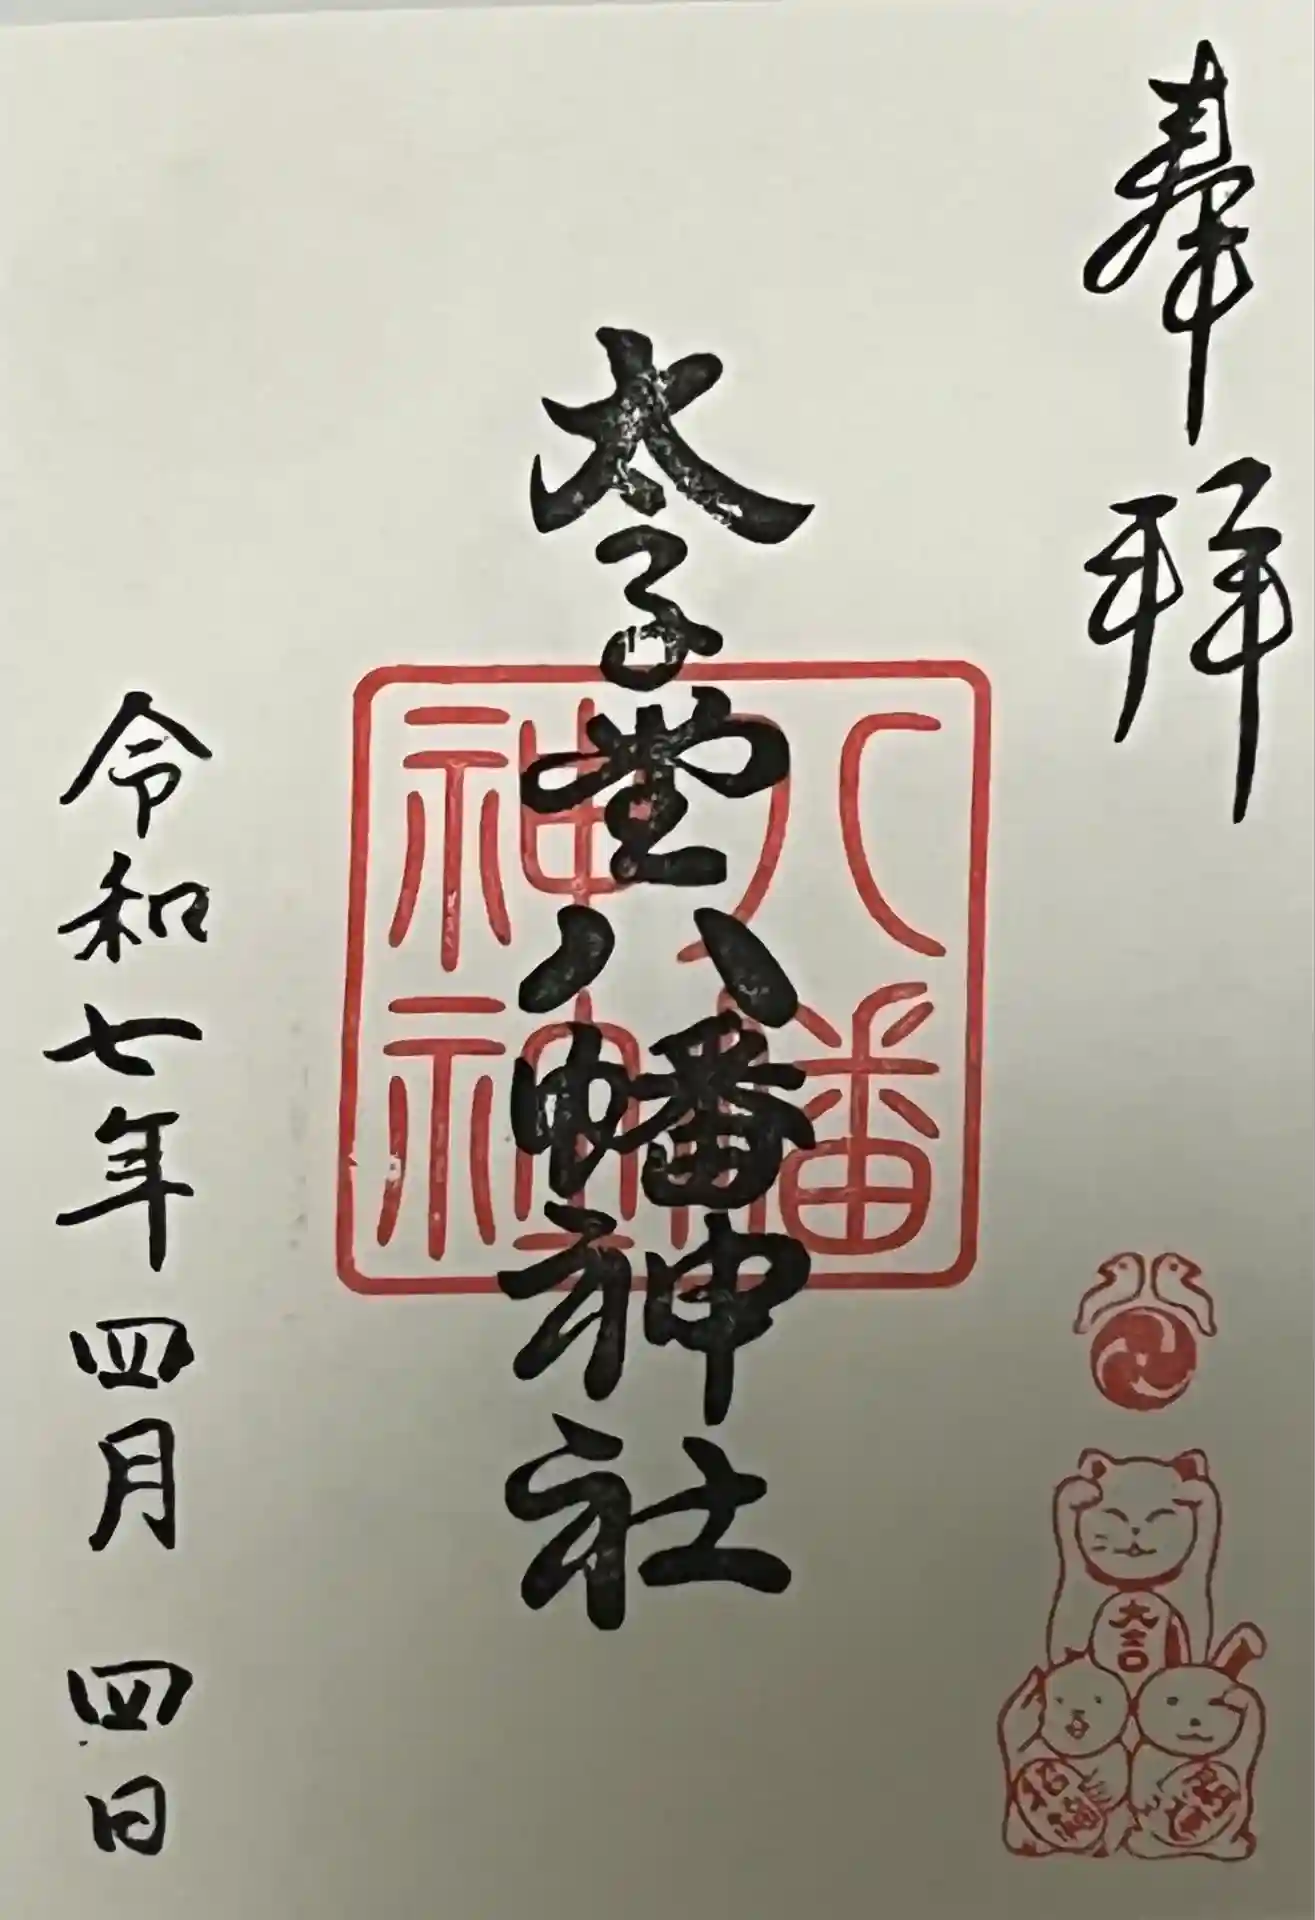 奉拝
太子堂八幡神社
八幡
神社
令和七年四月四日
大吉
招福